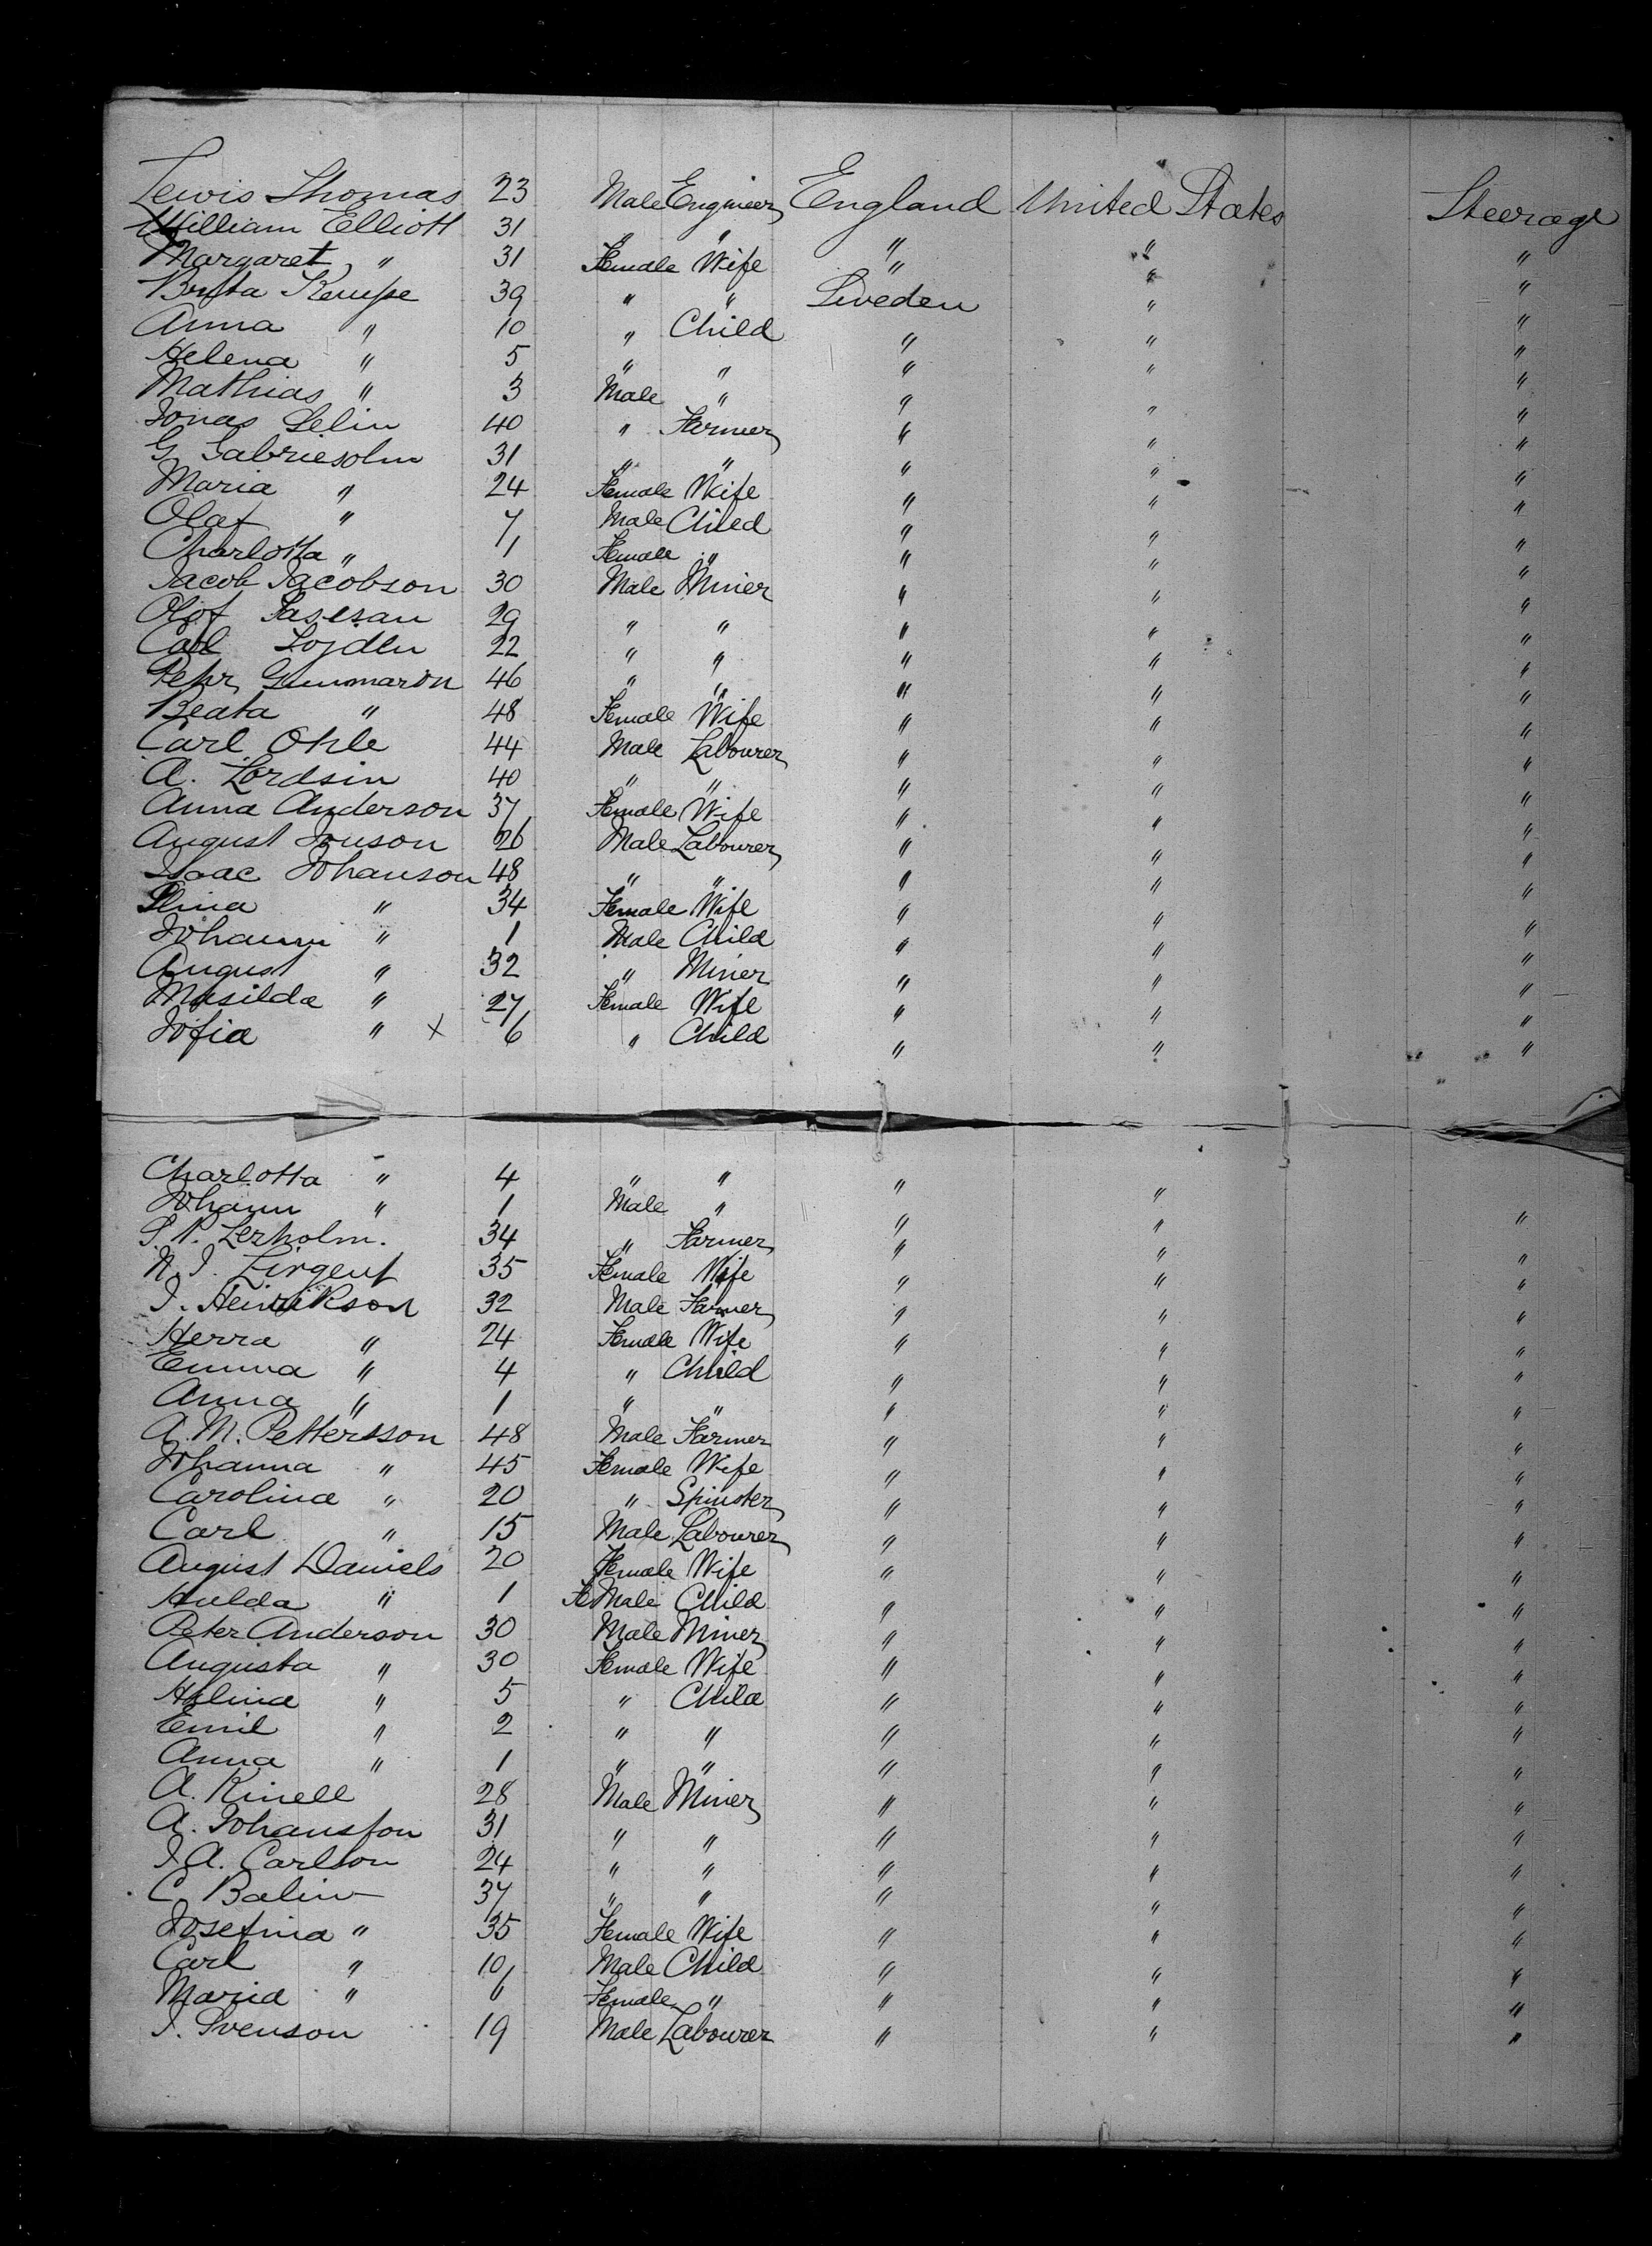 Lewis Thomas 23 Male Engineer England United States Steerage
William Elliott 31 " " " " "
Margaret " 31 Female Wife " " "
Brita Kempe 39 " " Sweden " "
Anna " 10 " Child " " "
Helena " 5 " " " " "
Mathias " 3 Male " " " "
Jonas Selin 40 " Farmer " " "
G. Gabriesolm 31 " " " " "
Maria " 24 Female Wife " " "
Olaf " 7 Male Child " " "
Charlotta " 1 Female " " " "
Jacob Jacobson 30 Male Miner " " "
Olof 29 " " " " "
Carl 22 " " " " "
Pehr Gunmaron 46 " " " " "
Beata " 48 Female Wife " " "
Carl Ohle 44 Male Labourer " " "
A. Lordsin 40 " " " " "
Anna Anderson 37 Female Wife " " "
August Jonson 26 Male Labourer " " "
Isaac Johanson 48 " " " " "
" 34 Female Wife " " "
Johann " 1 Male Child " " "
August " 32 " Miner " " "
" 27 Female Wife " " "
Sofia " x 6 " Child " " "
Charlotta " 4 " " " " "
Johann " 1 Male " " " "
S. P. Lerholm. 34 " Farmer " " "
35 Female Wife " " "
J. Heinrikson 32 Male Farmer " " "
Herra " 24 Female Wife " " "
Emma " 4 " Child " " "
Anna " 1 " " " " "
A. M. Pettersson 48 Male Farmer " " "
Johanna " 45 Female Wife " " "
Carolina " 20 " Spinster " " "
Carl " 15 Male Labourer " " "
August Daniels 20 Female Wife " " "
Hulda " 1 FeMale Child " " "
Peter Anderson 30 Male Miner " " "
Augusta " 30 Female Wife " " "
" 5 " Child " " "
Emil " 2 " " " " "
Anna " 1 " " " " "
A. Kinell 28 Male Miner " " "
A. Johansson 31 " " " " "
J. A. Carlson 24 " " " " "
C. Balin 37 " " " " "
Josefina " 35 Female Wife " " "
Carl " 10 Male Child " " "
Maria " 6 Female " " " "
J. Svenson 19 Male Labourer " " "